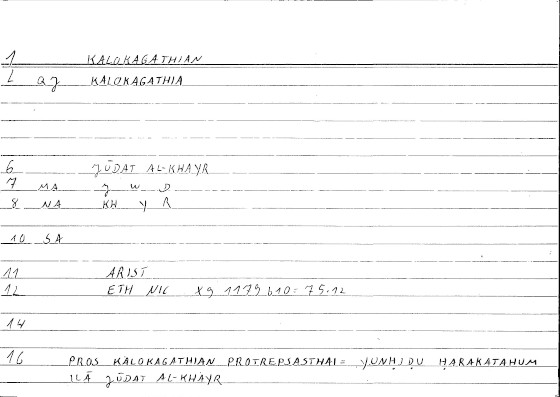 1 KALOKAGATHIAN
L aj KALOKAGATHIA
6 JŪDAT AL-KHAYR
7 MA J W D
8 NA KH Y R
10 SA
11 ARIST
12 ETH NIC X9 1179b10 = 75.12
14
16 PROS KALOKAGATHIAN PROTREPSASTHAI = YUNHIḌU ḤARAKATAHUM
ILĀ JŪDAT AL-KHAYR